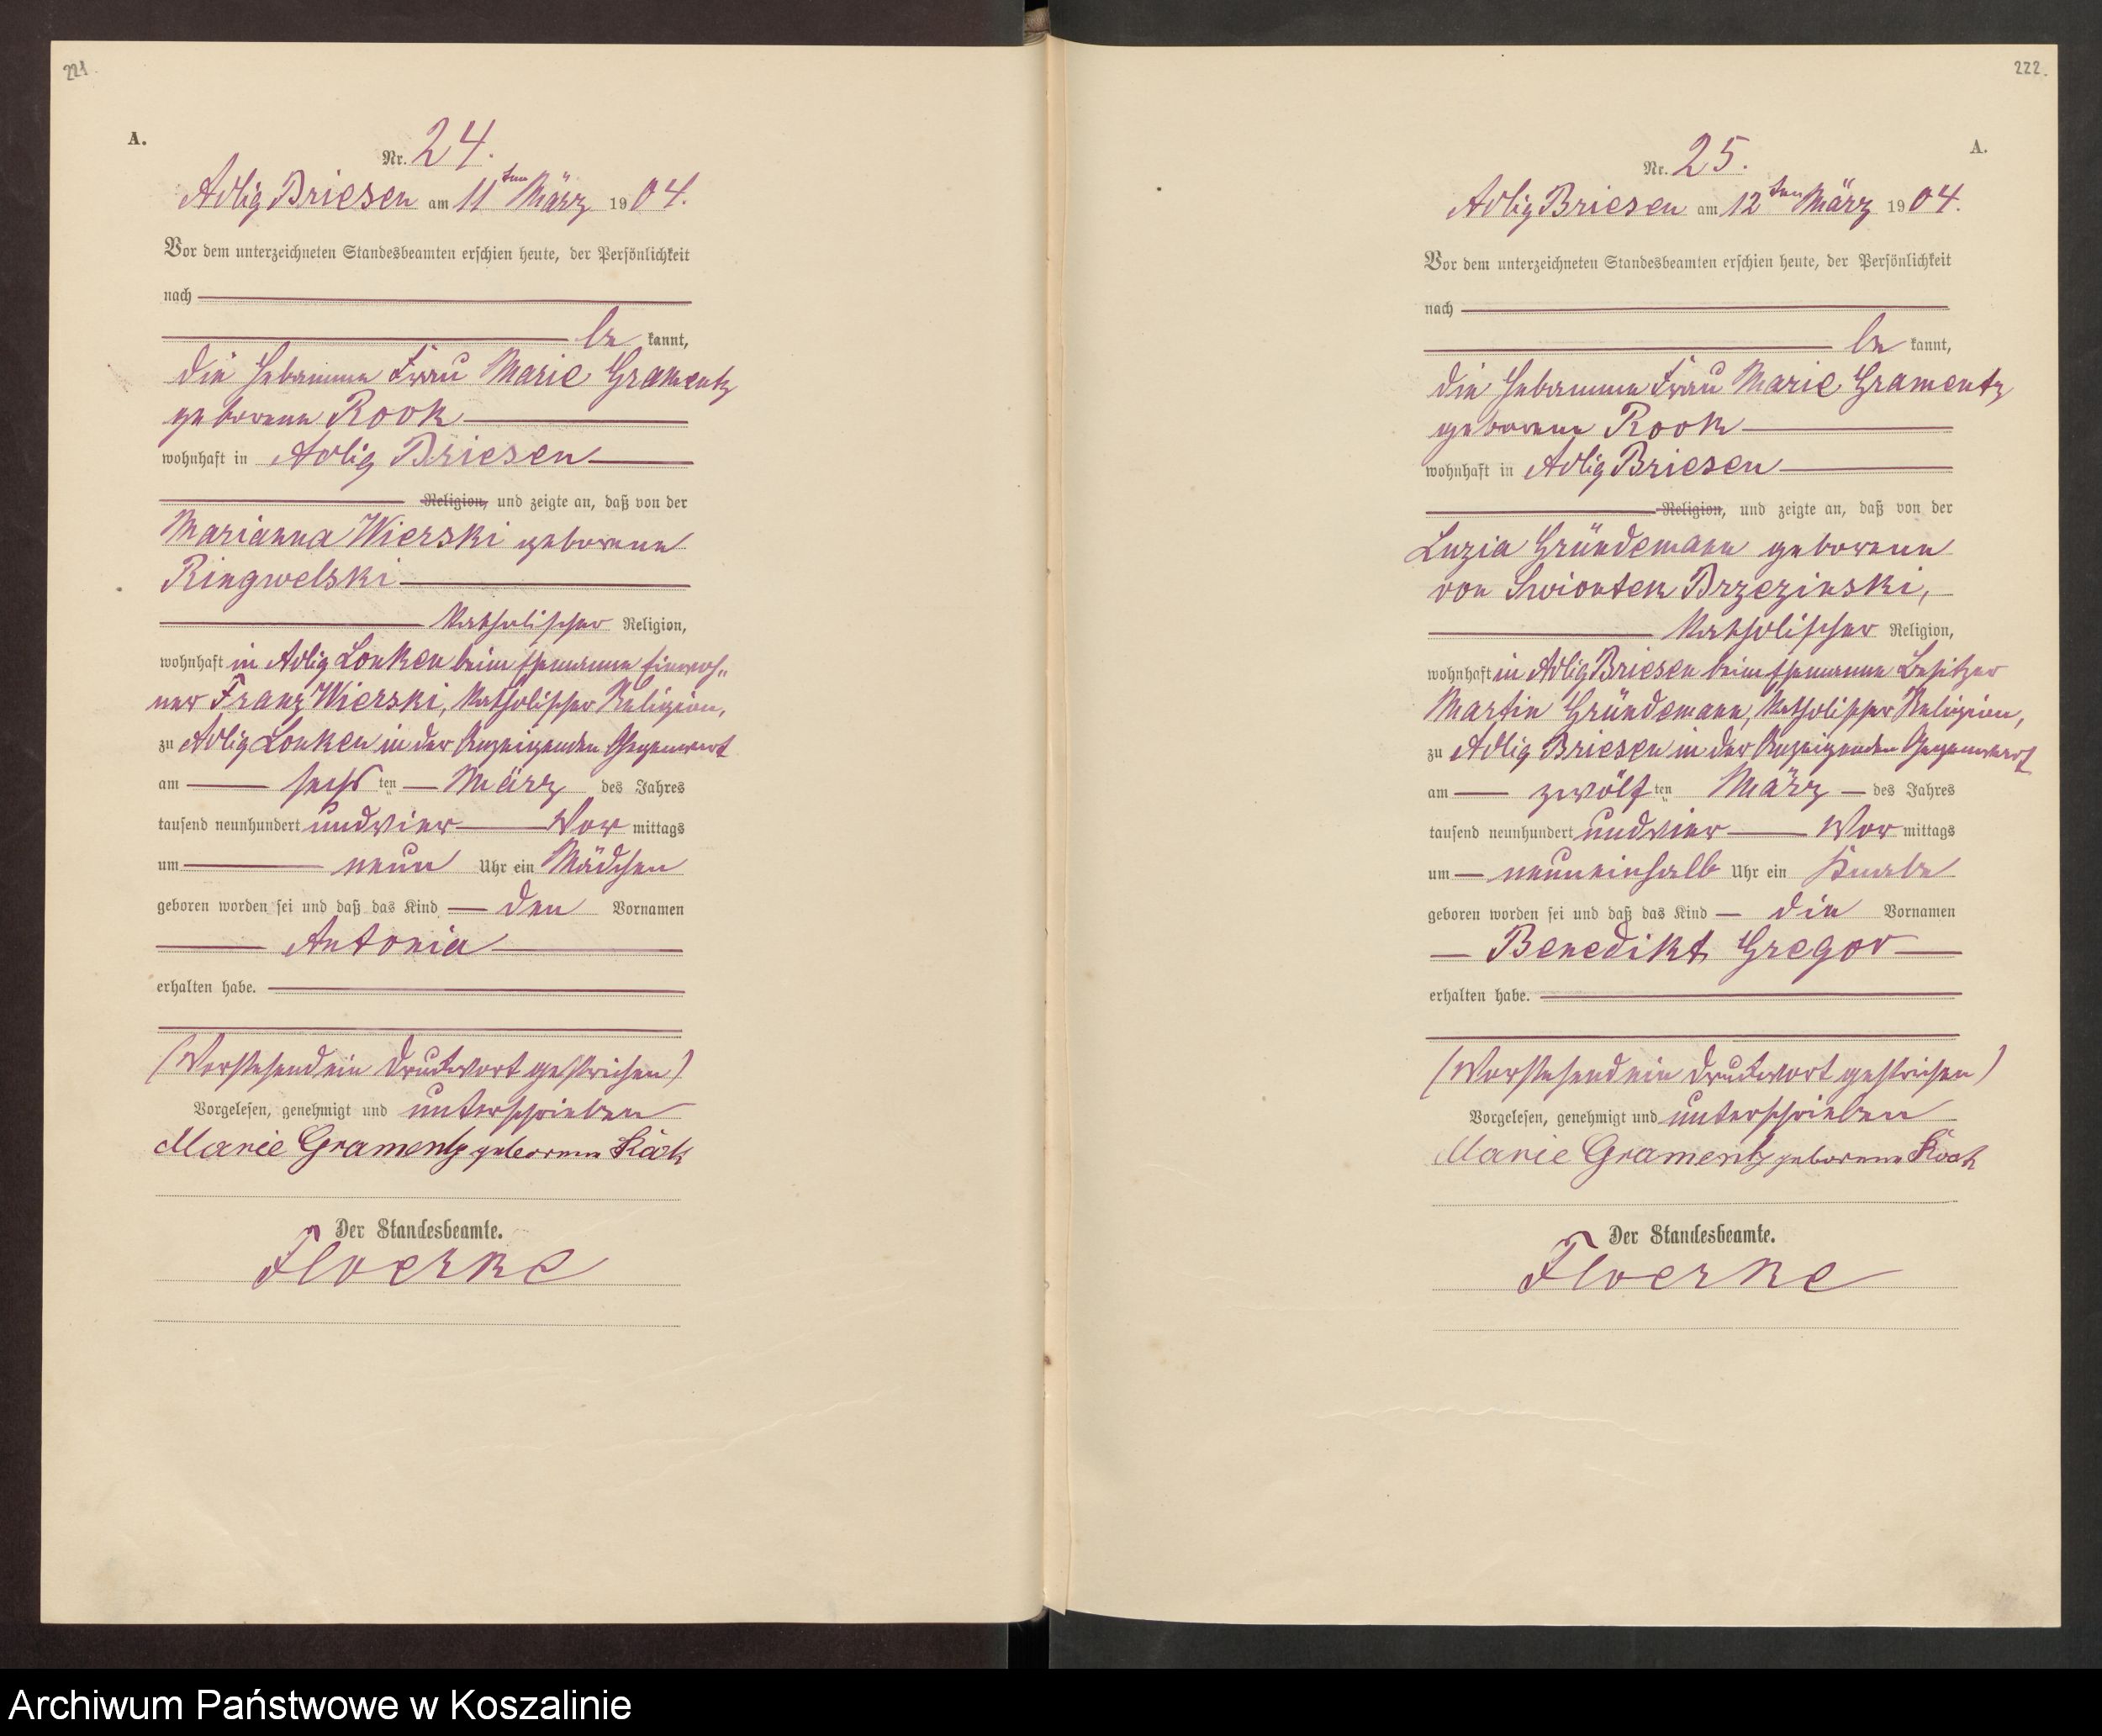 221.
A.
Nr. 24.
Adlig Briesen am 11ten März 1904.
Vor dem unterzeichneten Standesbeamten erschien heute, der Persönlichkeit
nach
be kannt,
die Hebamme Frau Marie Gramentz
geborene Rook
wohnhaft in Adlig Briesen
Religion, und zeigte an, daß von der
Marianna Wierski geborene
Ringwelski
katholischer Religion,
wohnhaft in Adlig Lonken beim Ehemanne Einwoh„
ner Franz Wierski, katholischer Religion,
zu Adlig Lonken in der Anzeigenden Gegenwart
am sechsten März des Jahres
tausend neunhundert undvier Vor mittags
um neun Uhr ein Mädchen
geboren worden sei und daß das Kind den Vornamen
Antonia
erhalten habe.
(Vorstehend ein Druckwort gestrichen)
Vorgelesen, genehmigt und unterschrieben
Marie Gramentz geborene Röök
Der Standesbeamte.
Floerke
222.
A.
Nr. 25.
Adlig Briesen am 12ten März 1904.
Vor dem unterzeichneten Standesbeamten erschien heute, der Persönlichkeit
nach
be kannt,
die Hebamme Frau Marie Gramentz
geborene Rook
wohnhaft in Adlig Briesen
Religion, und zeigte an, daß von der
Luzia Gründemann geborene
von Swiontek Brzezinski,
katholischer Religion,
wohnhaft in Adlig Briesen beim Ehemanne Besitzer
Martin Gründemann, katholischer Religion,
zu Adlig Briesen in der Anzeigenden Gegenwart
am zwölften März des Jahres
tausend neunhundert undvier Vor mittags
um neuneinhalb Uhr ein Knabe
geboren worden sei und daß das Kind die Vornamen
Benedikt Gregor
erhalten habe.
(Vorstehend ein Druckwort gestrichen)
Vorgelesen, genehmigt und unterschrieben
Marie Gramentz geborene Röök
Der Standesbeamte.
Floerke
Archiwum Państwowe w Koszalinie